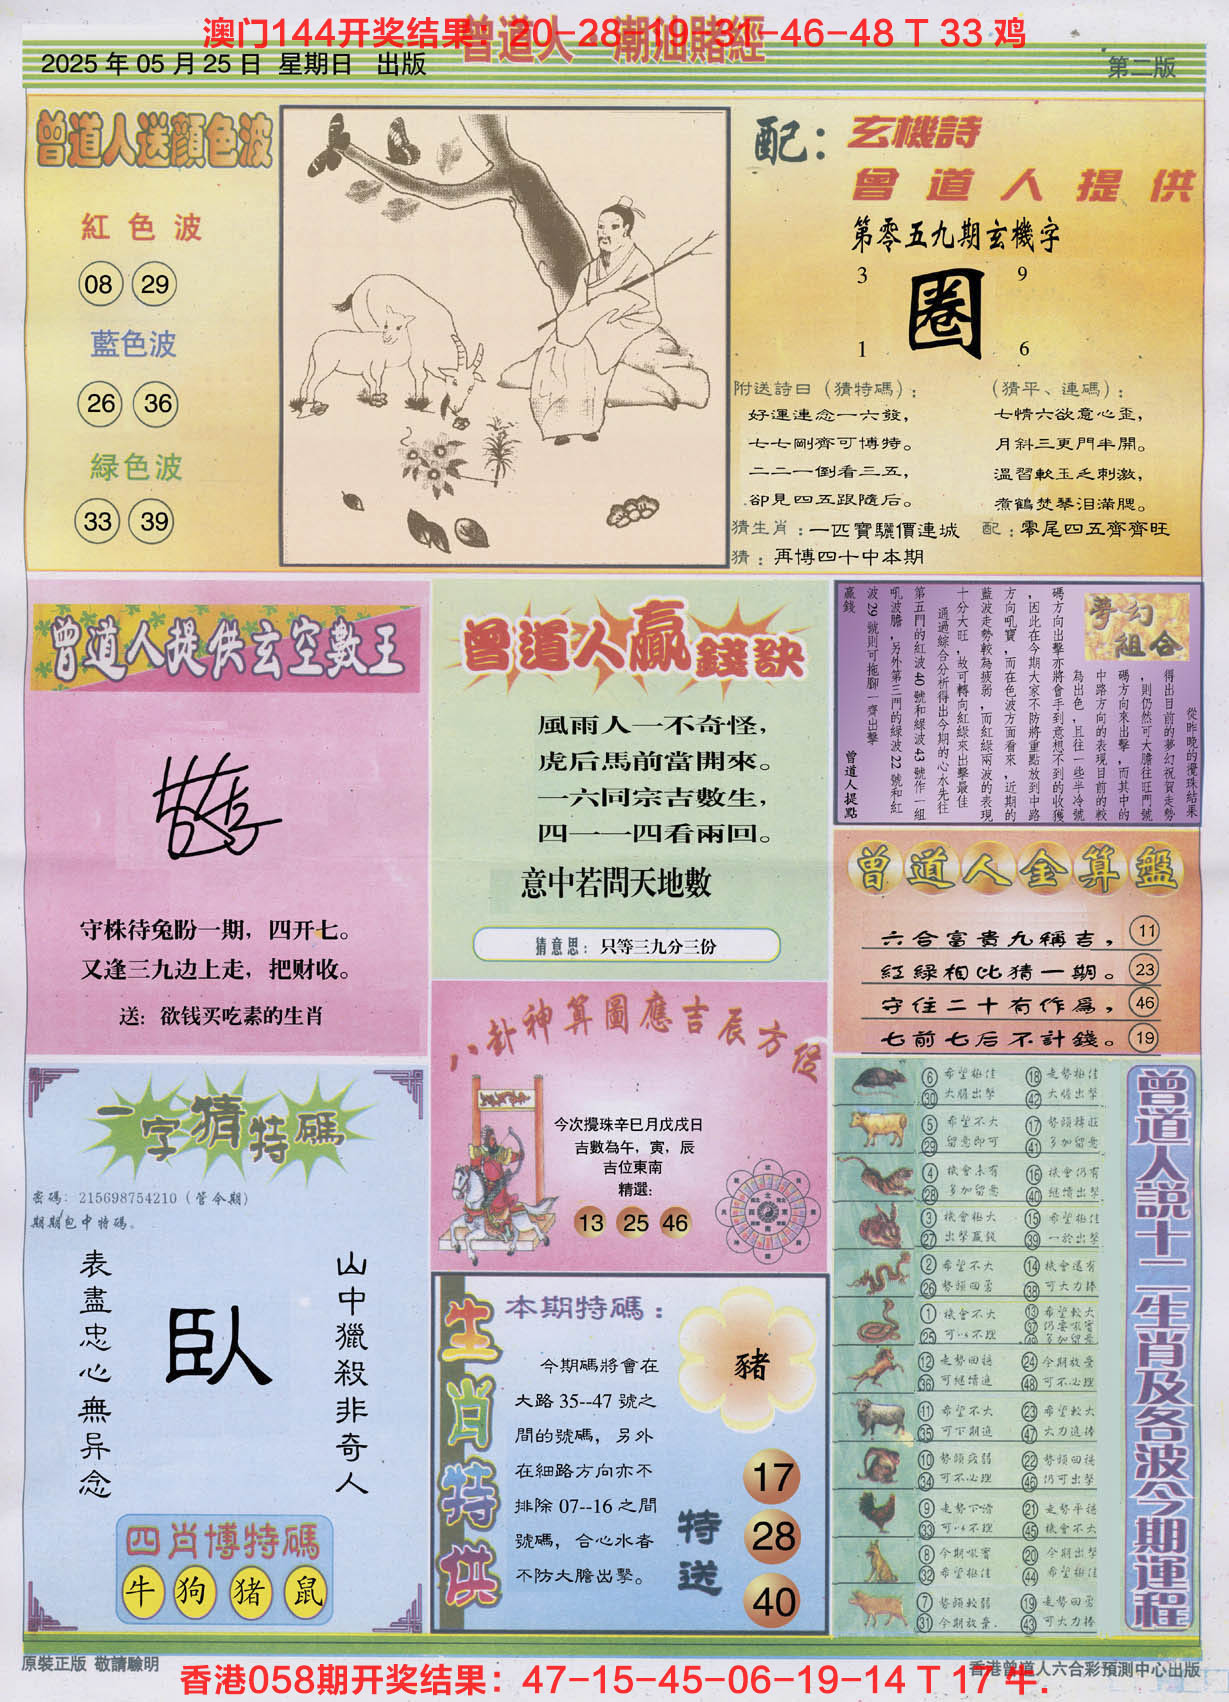 澳门144开奖结果：20-28-19-31-46-48 T 33 鸡
曾道人 潮汕賭經
2025 年 05 月 25 日 星期日 出版
第二版
曾道人送顏色波
紅色波
08 29
藍色波
26 36
緑色波
33 39
配：玄機詩
曾道人提供
第零五九期玄機字
3 9
圈
1 6
附送詩曰（猜特碼）：
好運連念一六發，
七七剛齊可博特。
二二一倒看三五，
卻見四五跟隨后。
（猜平、連碼）：
七情六欲意心歪，
月斜三更門半開。
溫習軟玉乏刺激，
煮鶴焚琴泪滿腮。
猜生肖：一匹寶驪價連城
配：零尾四五齊齊旺
猜：再博四十中本期
曾道人提供玄空數王
守株待兔盼一期，四开七。
又逢三九边上走，把财收。
送：欲钱买吃素的生肖
曾道人贏錢訣
風雨人一不奇怪，
虎后馬前當開來。
一六同宗吉數生，
四一一四看兩回。
意中若問天地數
猜意思：只等三九分三份
夢幻組合
從昨晚的攪珠結果
得出目前的夢幻祝賀走勢
，則仍然可大膽往旺門號
碼方向來出擊，而其中的
中路方向的表現目前的較
為出色，且往一些半冷號
碼方向出擊亦將會手到意想不到的收獲
，因此在今期大家不防將重點放到中路
方向吼寶，而在色波方面看來，近期的
藍波走勢較為疲弱，而紅緑兩波的表現
十分大旺，故可轉向紅緑來出擊最佳
通過綜合分析得出今期的心水先往
第五門的紅波 40 號和緑波 43 號作一組
吼波膽，另外第三門的緑波 22 號和紅
波 29 號則可拖腳一齊出擊
贏錢
曾道人提點
曾道人金算盤
六合富貴九稱吉， 11
紅緑相比猜一期。 23
守住二十有作為， 46
七前七后不計錢。 19
八卦神算圖應吉辰方位
今次攪珠辛巳月戊戌日
吉數為午，寅，辰
吉位東南
精選：
13 25 46
一字猜特碼
密碼：215698754210（管今期）
期期包中特碼。
表盡忠心無异念
臥
山中獵殺非奇人
四肖博特碼
牛 狗 猪 鼠
生肖特供
本期特碼：
今期碼將會在
大路 35--47 號之
間的號碼，另外
在細路方向亦不
排除 07--16 之間
號碼，合心水者
不防大膽出擊。
豬
特送
17
28
40
曾道人説十二生肖及各波今期運程
6 希望極佳 18 走勢極佳
30 大膽出擊 42 大膽出擊
5 希望不大 17 勢頭轉旺
29 留意即可 41 多加留意
4 機會未有 16 機會仍有
28 多加留意 40 繼續出擊
3 機會極大 15 希望極佳
27 出擊贏錢 39 一於出擊
2 希望不大 14 機會還有
26 勢頭回勇 38 可大力捧
1 機會不大 13 希望較大
25 可以不理 37 仍要吼寶
49 多加留意
12 走勢回穩 24 今期放棄
36 可繼續追 48 可不必理
11 希望不大 23 希望較大
35 可下期追 47 大力追捧
10 勢頭疲弱 22 勢頭回穩
34 可不必理 46 仍可出擊
9 走勢下滑 21 走勢平穩
33 可以不理 45 機會不大
8 今期吼寶 20 今期出擊
32 希望極佳 44 希望極佳
7 勢頭較弱 19 走勢回勇
31 今期放棄. 43 可大力捧
原裝正版 敬請驗明
香港曾道人六合彩預測中心出版
香港058期开奖结果：47-15-45-06-19-14 T 17 牛.